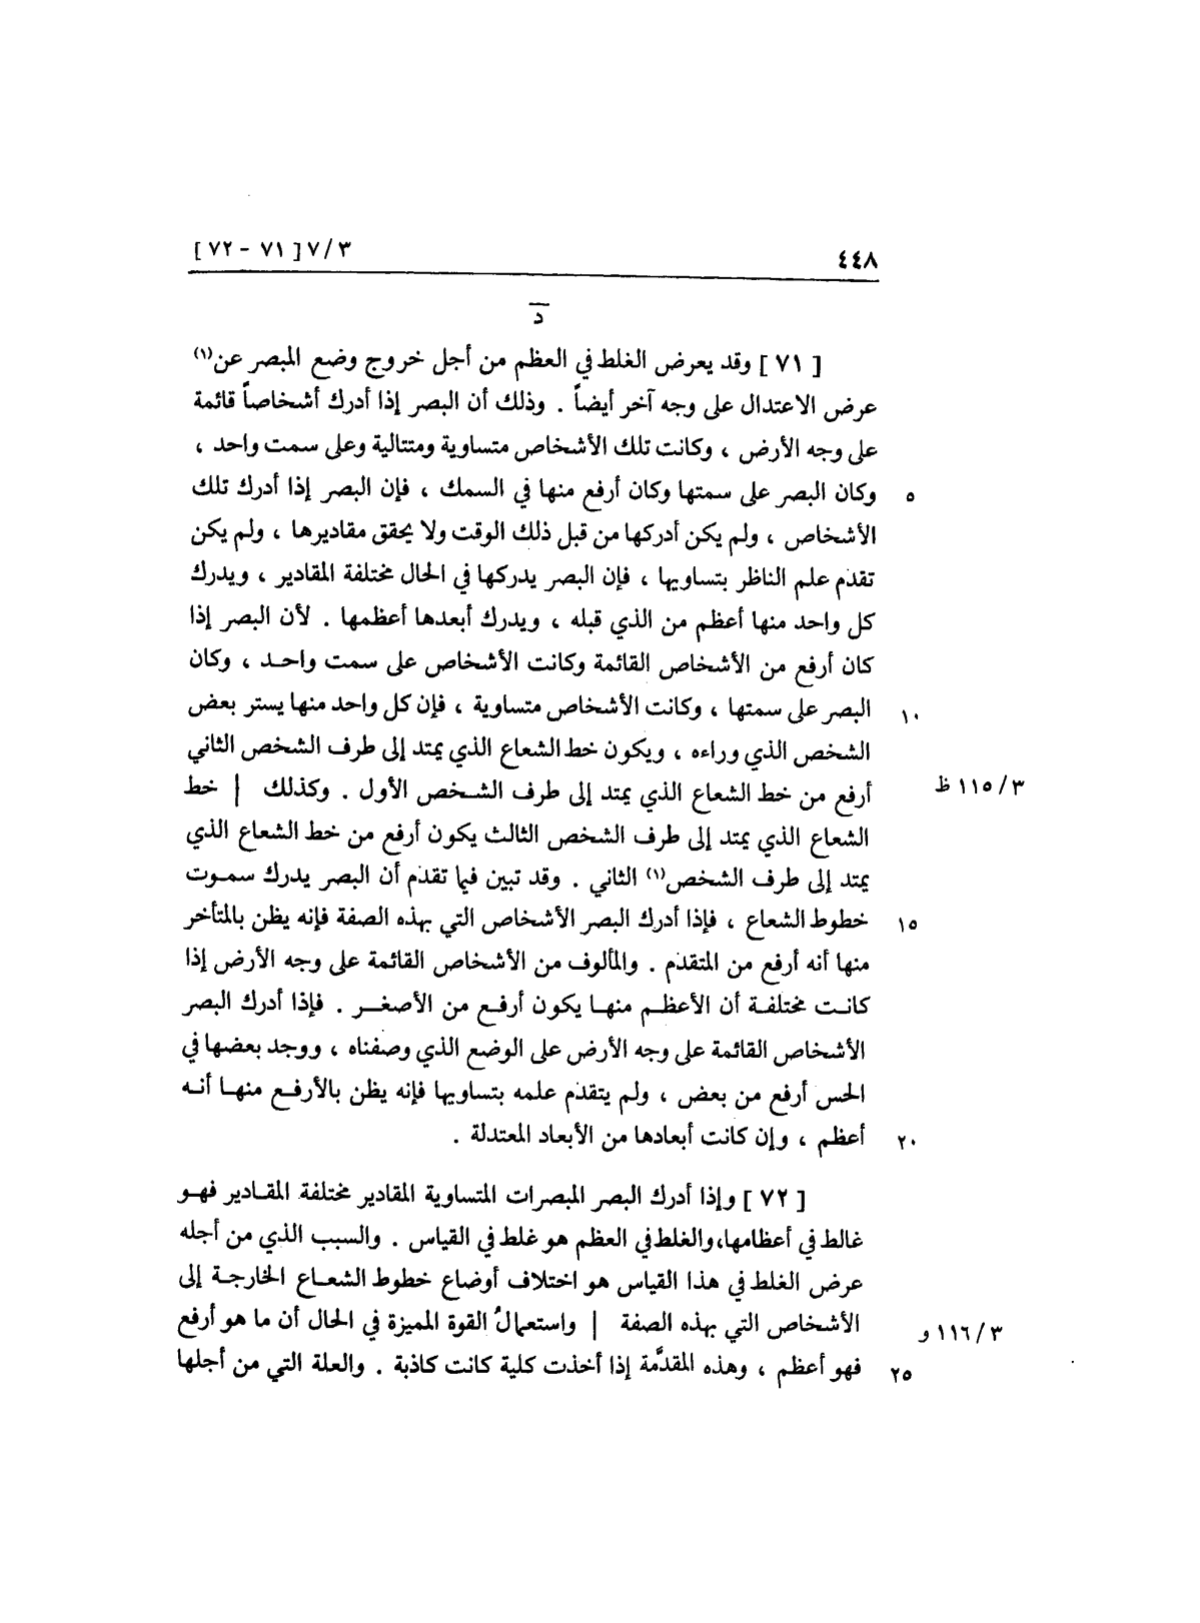 ٤٤٨ ٧/٣ [ ٧١ - ٧٢ ]
د
[ ٧١ ] وقد يعرض الغلط في العظم من أجل خروج وضع المبصر عن(١)
عرض الاعتدال على وجه آخر أيضاً . وذلك أن البصر إذا أدرك أشخاصاً قائمة
على وجه الأرض ، وكانت تلك الأشخاص متساوية ومتتالية وعلى سمت واحد ،
٥ وكان البصر على سمتها وكان أرفع منها في السمك ، فإن البصر إذا أدرك تلك
الأشخاص ، ولم يكن أدركها من قبل ذلك الوقت ولا يحقق مقاديرها ، ولم يكن
تقدم علم الناظر بتساويها ، فإن البصر يدركها في الحال مختلفة المقادير ، ويدرك
كل واحد منها أعظم من الذي قبله ، ويدرك أبعدها أعظمها . لأن البصر إذا
كان أرفع من الأشخاص القائمة وكانت الأشخاص على سمت واحد ، وكان
١٠ البصر على سمتها ، وكانت الأشخاص متساوية ، فإن كل واحد منها يستر بعض
الشخص الذي وراءه ، ويكون خط الشعاع الذي يمتد إلى طرف الشخص الثاني
٣/ ١١٥ ظ أرفع من خط الشعاع الذي يمتد إلى طرف الشخص الأول . وكذلك | خط
الشعاع الذي يمتد إلى طرف الشخص الثالث يكون أرفع من خط الشعاع الذي
يمتد إلى طرف الشخص(١) الثاني . وقد تبين فيما تقدم أن البصر يدرك سموت
١٥ خطوط الشعاع ، فإذا أدرك البصر الأشخاص التي بهذه الصفة فإنه يظن بالمتأخر
منها أنه أرفع من المتقدم . والمألوف من الأشخاص القائمة على وجه الأرض إذا
كانت مختلفة أن الأعظم منها يكون أرفع من الأصغر . فإذا أدرك البصر
الأشخاص القائمة على وجه الأرض على الوضع الذي وصفناه ، ووجد بعضها في
الحس أرفع من بعض ، ولم يتقدم علمه بتساويها فإنه يظن بالأرفع منها أنه
٢٠ أعظم ، وإن كانت أبعادها من الأبعاد المعتدلة .
[ ٧٢ ] وإذا أدرك البصر المبصرات المتساوية المقادير مختلفة المقادير فهو
غالط في أعظامها، والغلط في العظم هو غلط في القياس . والسبب الذي من أجله
عرض الغلط في هذا القياس هو اختلاف أوضاع خطوط الشعاع الخارجة إلى
٣/ ١١٦ و الأشخاص التي بهذه الصفة | واستعمالُ القوة المميزة في الحال أن ما هو أرفع
٢٥ فهو أعظم ، وهذه المقدَّمة إذا أخذت كلية كانت كاذبة . والعلة التي من أجلها